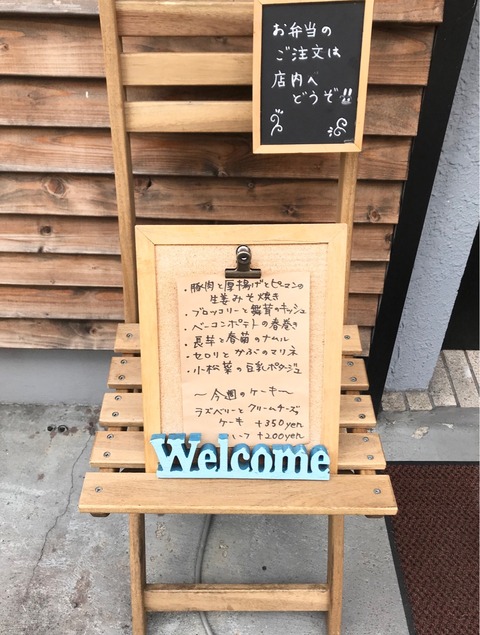 お弁当の
ご注文は
店内へ
どうぞ!!
・豚肉と厚揚げとピーマンの
生姜みそ焼き
・ブロッコリーと舞茸のキッシュ
・ベーコンポテトの春巻き
・長芋と春菊のナムル
・セロリとかぶのマリネ
・小松菜の豆乳ポタージュ
〜今週のケーキ〜
ラズベリーとクリームチーズ
ケーキ +350yen
+200yen
Welcome